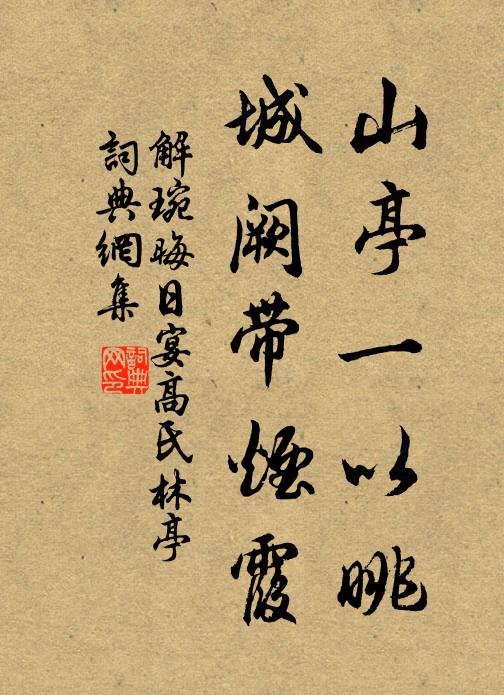 山亭一以眺
城阙带煙霞
解琬晦日宴高氏林亭
詞典網集
詞典
网印